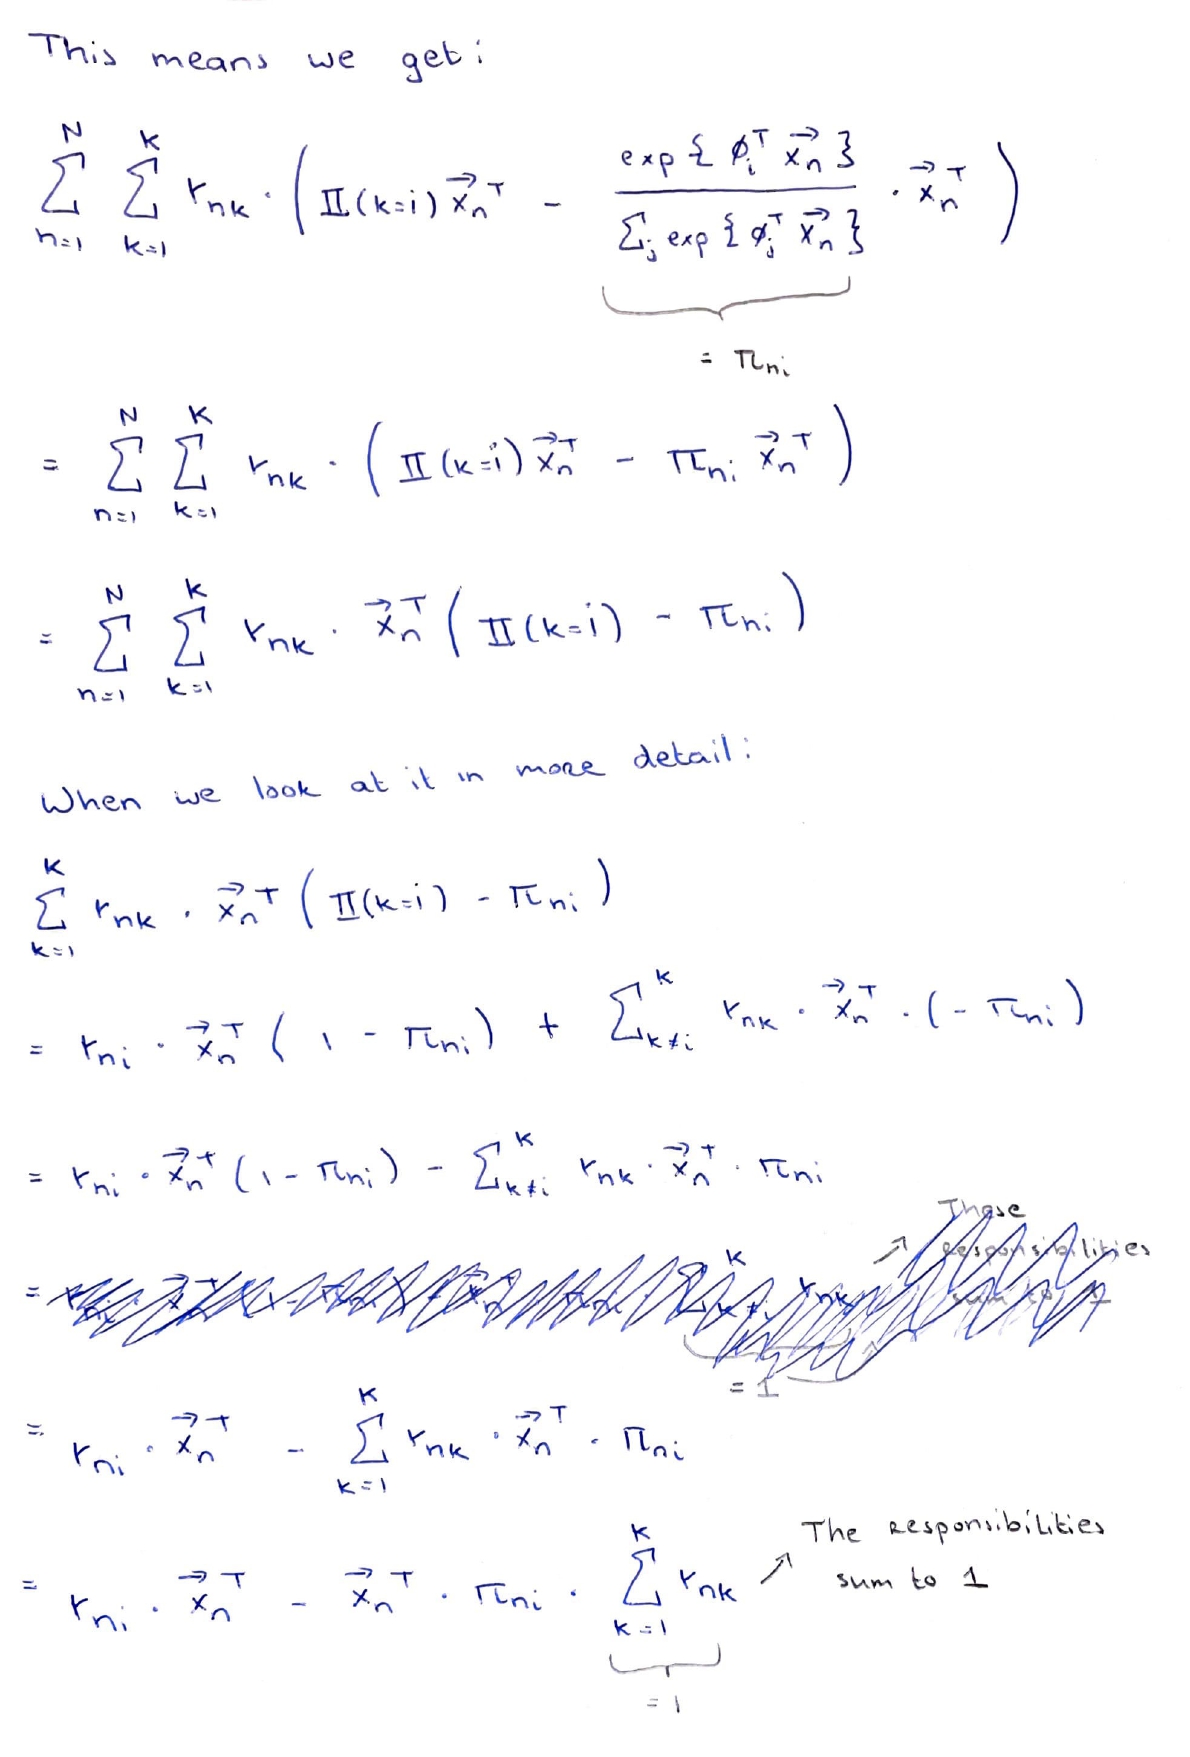 This means we get:
$\sum_{n=1}^{N} \sum_{k=1}^{K} r_{nk} \cdot \left( \mathbb{I}(k=i) \vec{x}_n^T - \underbrace{\frac{\exp\{\phi_i^T \vec{x}_n\}}{\sum_j \exp\{\phi_j^T \vec{x}_n\}}}_{= \pi_{ni}} \cdot \vec{x}_n^T \right)$
$= \sum_{n=1}^{N} \sum_{k=1}^{K} r_{nk} \cdot \left( \mathbb{I}(k=i) \vec{x}_n^T - \pi_{ni} \vec{x}_n^T \right)$
$= \sum_{n=1}^{N} \sum_{k=1}^{K} r_{nk} \cdot \vec{x}_n^T \left( \mathbb{I}(k=i) - \pi_{ni} \right)$
When we look at it in more detail:
$\sum_{k=1}^{K} r_{nk} \cdot \vec{x}_n^T \left( \mathbb{I}(k=i) - \pi_{ni} \right)$
$= r_{ni} \cdot \vec{x}_n^T ( 1 - \pi_{ni} ) + \sum_{k \neq i}^{K} r_{nk} \cdot \vec{x}_n^T \cdot ( - \pi_{ni} )$
$= r_{ni} \cdot \vec{x}_n^T ( 1 - \pi_{ni} ) - \sum_{k \neq i}^{K} r_{nk} \cdot \vec{x}_n^T \cdot \pi_{ni}$
These
responsibilities
sum to 1
= 1
$= r_{ni} \cdot \vec{x}_n^T - \sum_{k=1}^{K} r_{nk} \cdot \vec{x}_n^T \cdot \pi_{ni}$
$= r_{ni} \cdot \vec{x}_n^T - \vec{x}_n^T \cdot \pi_{ni} \cdot \underbrace{\sum_{k=1}^{K} r_{nk}}_{= 1}$ ↗ The responsibilities
sum to 1